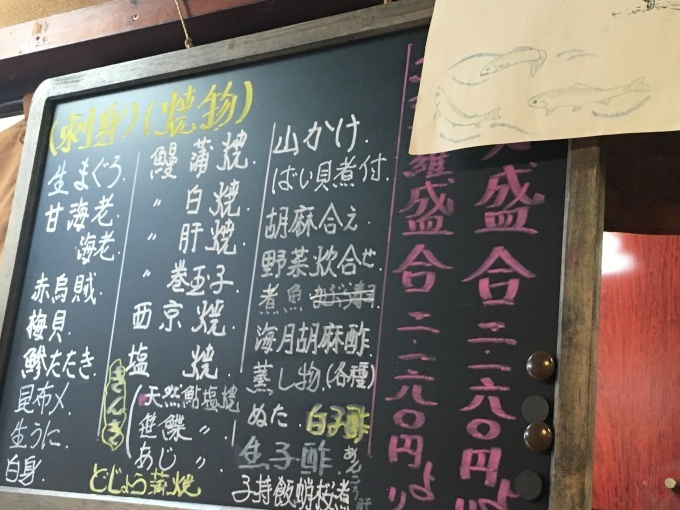 (刺身)
生まぐろ.
甘海老.
海老.
赤烏賊.
梅貝.
鰺たたき
昆布〆.
生うに.
白身.
(焼物)
鰻蒲焼.
〃白焼.
〃肝焼.
〃巻玉子.
西京焼.
塩焼.
天然鮎塩焼
あじ〃.
どじょう蒲焼
山かけ.
ばい貝煮付.
胡麻合え
野菜炊合せ
煮魚
海月胡麻酢
蒸し物(各種)
ぬた.白子酢
生子酢
あんこう肝
子持飯蛸桜煮
羅盛合二.一六〇円より
盛合二.一六〇円より